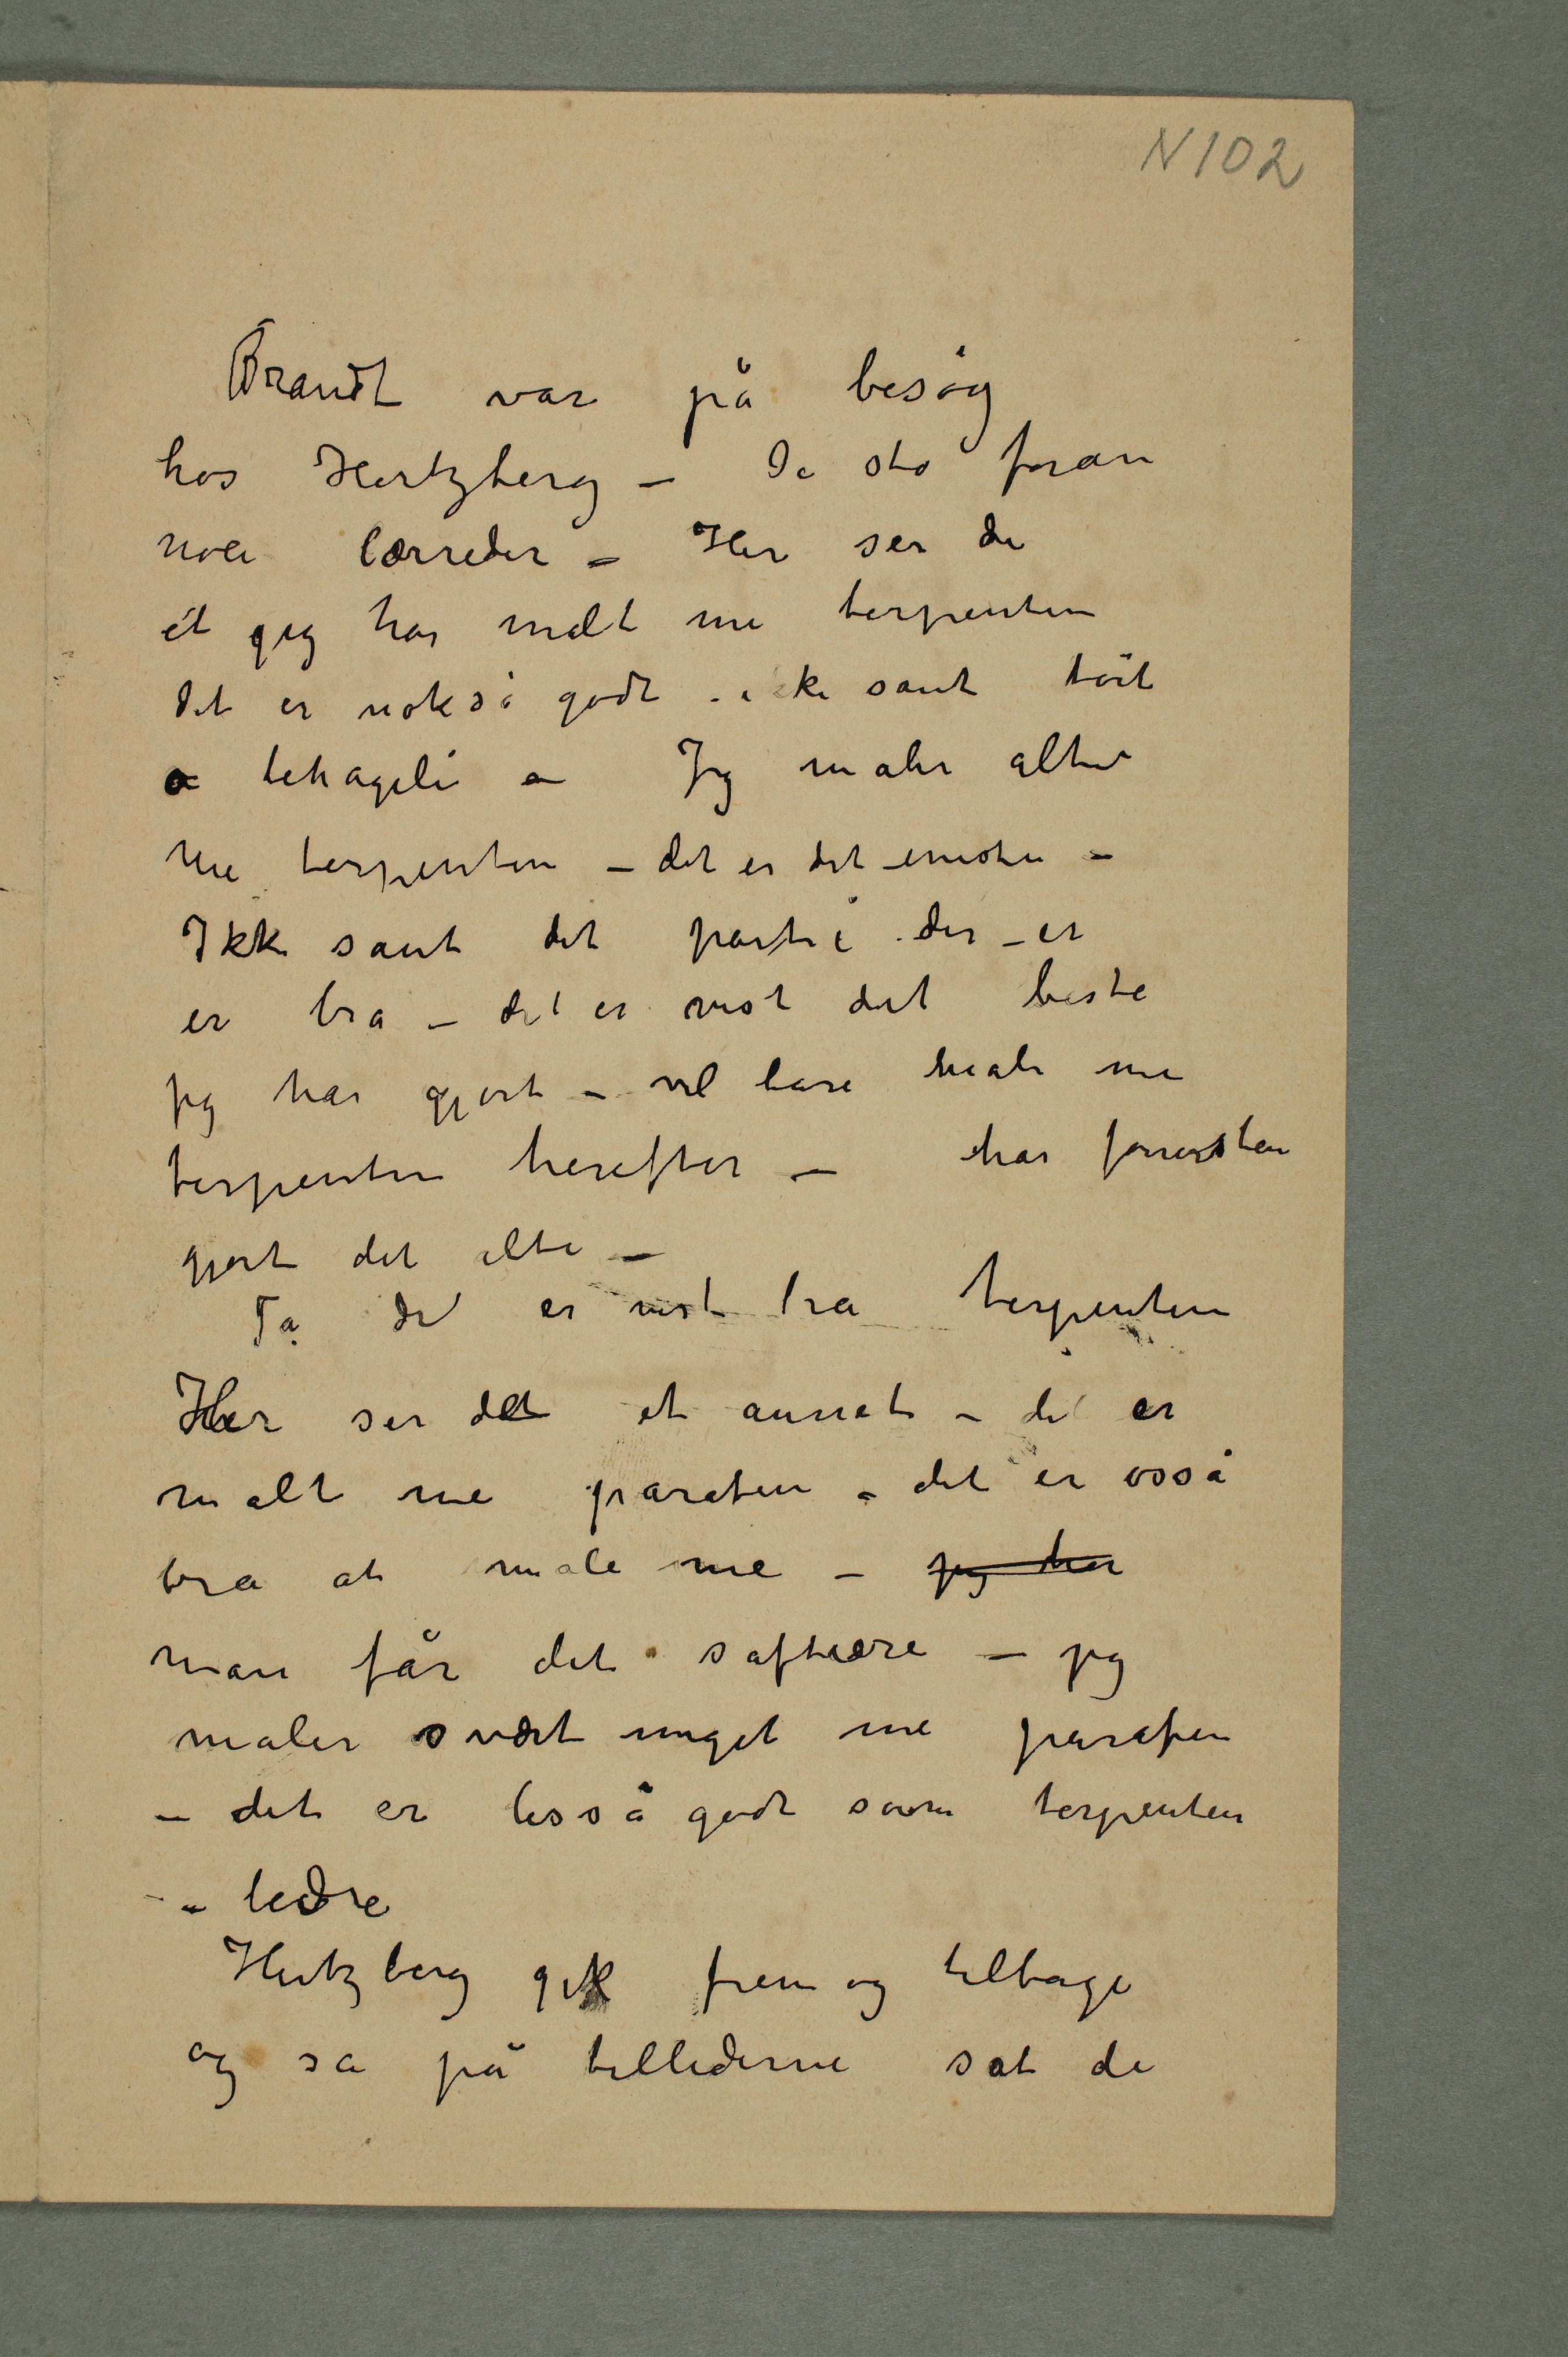 N 102
Brandt var på besøg
hos Hertzberg – De sto foran
noen lærreder – Her ser de
et jeg har malt me terpentin
det er nokså godt – ikke sant tørt
o behageli – Jeg maler alti
me terpentin – det er det eneste –
Ikke sant det parti der – er
er bra – det er vist det beste
jeg har gjort – vil bare male me
terpentin herefter – har forresten
gjort det alti –
Ja det er vist bra terpentin
Her ser de et annet – det er
malt me parafin – det er osså
bra at male me – jeg har
man får det saftiere – jeg
maler svært meget me parafin
– det er lisså godt som terpentin
– bedre
Hertzberg gik frem og tilbage
og sa på billederne sat de